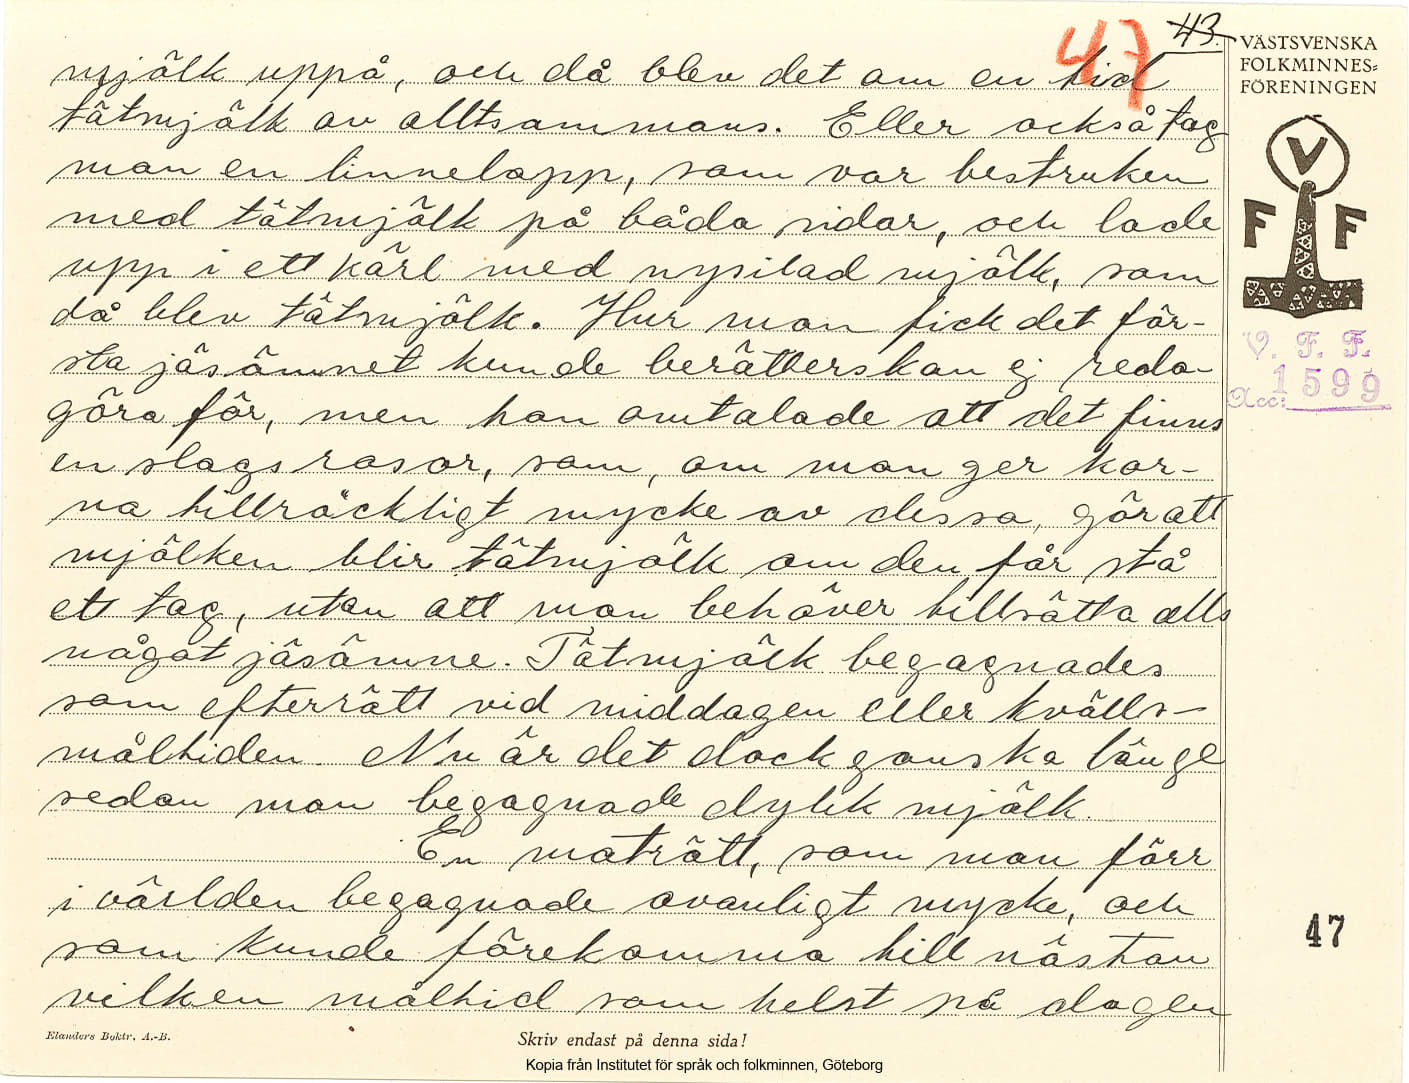 47 43.
VÄSTSVENSKA
FOLKMINNES=
FÖRENINGEN
V
F F
V. F. F.
Acc: 1599
mjölk uppå, och då blev det om en tid
tätmjölk av alltsammans. Eller också tog
man en linnelapp, som var bestruken
med tätmjölk på båda sidor, och lade
upp i ett kärl med nysilad mjölk, som
då blev tätmjölk. Hur man fick det för-
sta jäsämnet kunde berätterskan ej redo-
göra för, men hon omtalade att det finns
en slags rasor, som, om man ger kor-
na tillräckligt mycke av dessa, gör att
mjölken blir tätmjölk om den får stå
ett tag, utan att man behöver tillsätta alls
något jäsämne. Tätmjölk begagnades
som efterrätt vid middagen eller kvälls-
måltiden. Nu är det dock ganska länge
sedan man begagnade dylik mjölk.
En maträtt, som man förr
i världen begagnade ovanligt mycke, och
som kunde förekomma till nästan
vilken måltid som helst på dagen
47
Elanders Boktr. A.-B.
Skriv endast på denna sida!
Kopia från Institutet för språk och folkminnen, Göteborg